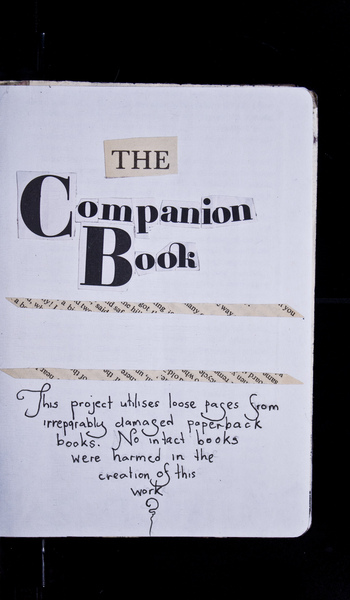 THE
Companion
Book
This project utilises loose pages from
irreparably damaged paperback
books. No intact books
were harmed in the
creation of this
work